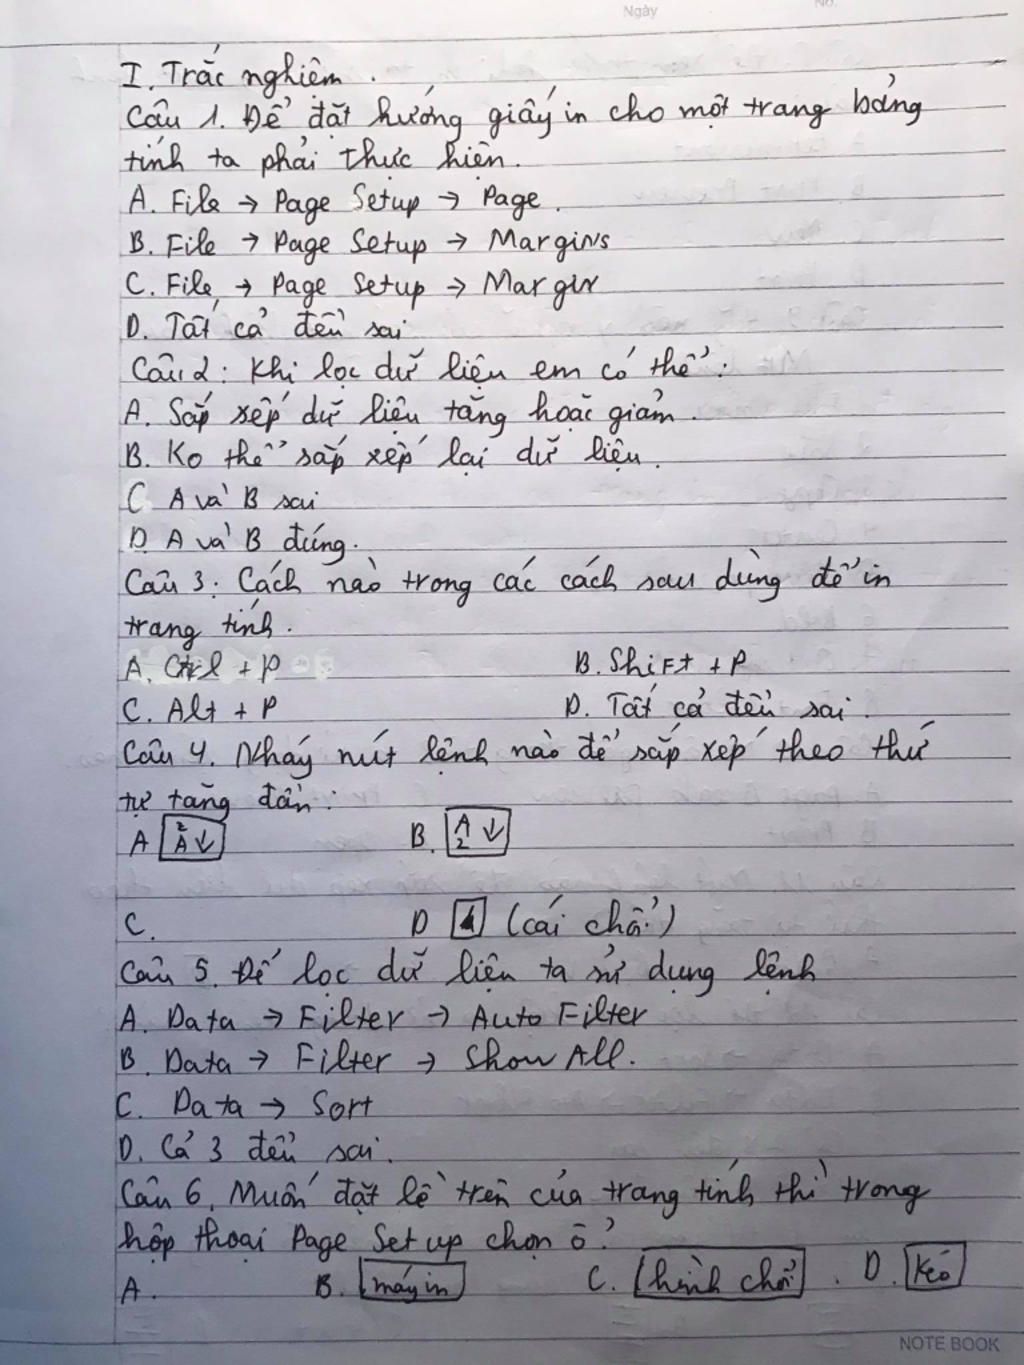 Ngày
No.
I. Trắc nghiệm.
Câu 1. Để đặt hướng giấy in cho một trang bảng
tính ta phải thực hiện.
A. File → Page Setup → Page.
B. File → Page Setup → Margins
C. File → Page Setup → Margin
D. Tất cả đều sai
Câu 2: Khi lọc dữ liệu em có thể:
A. Sắp xếp dữ liệu tăng hoặc giảm.
B. Ko thể sắp xếp lại dữ liệu.
C A và B sai
D A và B đúng.
Câu 3: Cách nào trong các cách sau dùng để in
trang tính.
A. Ctrl + P B. Shift + P
C. Alt + P D. Tất cả đều sai.
Câu 4. Nháy nút lệnh nào để sắp xếp theo thứ
tự tăng dần:
A Z A ↓ B. A Z ↓
C. D (cái chổi)
Câu 5. Để lọc dữ liệu ta sử dụng lệnh
A. Data → Filter → Auto Filter
B. Data → Filter → Show All.
C. Data → Sort
D. Cả 3 đều sai.
Câu 6. Muốn đặt lề trên của trang tính thì trong
hộp thoại Page Set up chọn ô?
A. B. máy in C. hình chổi. D. Kéo
NOTE BOOK